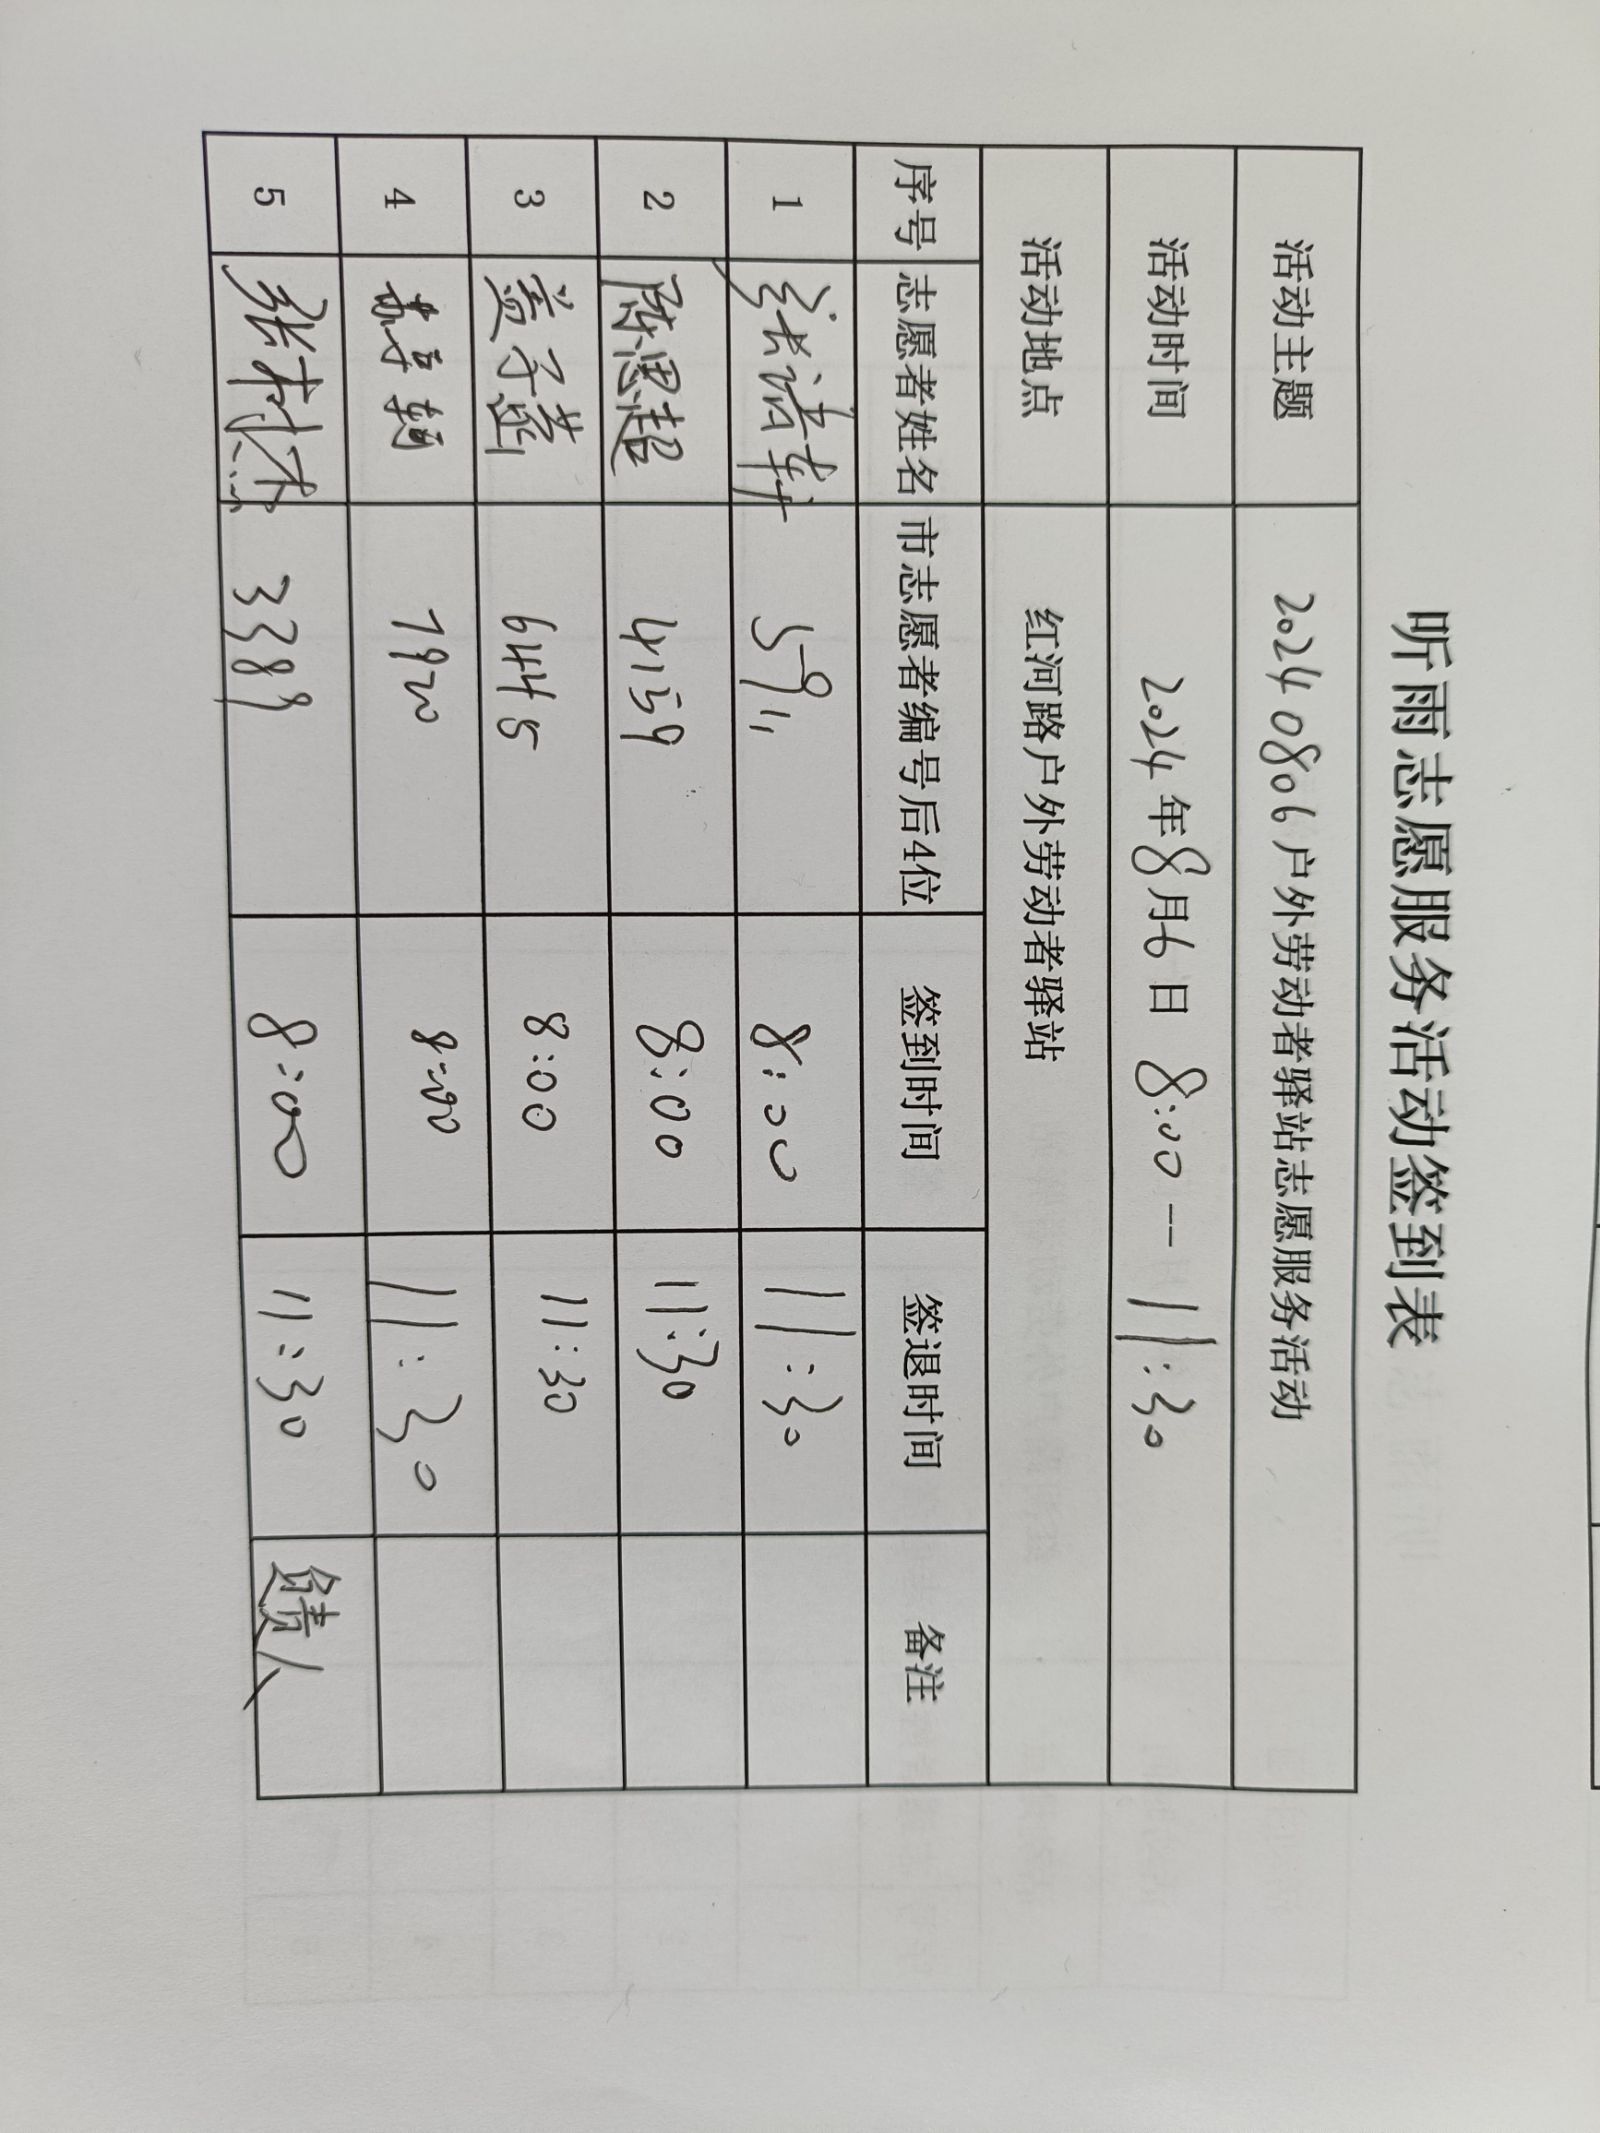 听雨志愿服务活动签到表
活动主题 20240806户外劳动者驿站志愿服务活动
活动时间 2024年8月6日 8:00--11:30
活动地点 红河路户外劳动者驿站
序号 志愿者姓名 市志愿者编号后4位 签到时间 签退时间 备注
1 5911 8:00 11:30
2 陈思超 4159 8:00 11:30
3 盖子菡 6445 8:00 11:30
4 7920 8:00 11:30
5 3389 8:00 11:30 负责人